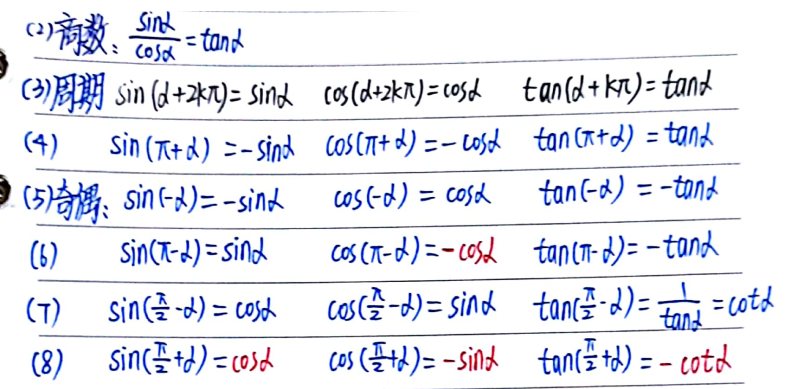 (2)商数: sinα/cosα = tanα
(3)周期 sin(α+2kπ)= sinα cos(α+2kπ)=cosα tan(α+kπ)=tanα
(4) sin(π+α) =-sinα cos(π+α)=-cosα tan(π+α) =tanα
(5)奇偶: sin(-α)=-sinα cos(-α) = cosα tan(-α) = -tanα
(6) sin(π-α)=sinα cos(π-α)=-cosα tan(π-α)=-tanα
(7) sin(π/2-α)= cosα cos(π/2-α)=sinα tan(π/2-α)=1/tanα=cotα
(8) sin(π/2+α)=cosα cos(π/2+α)=-sinα tan(π/2+α)=-cotα